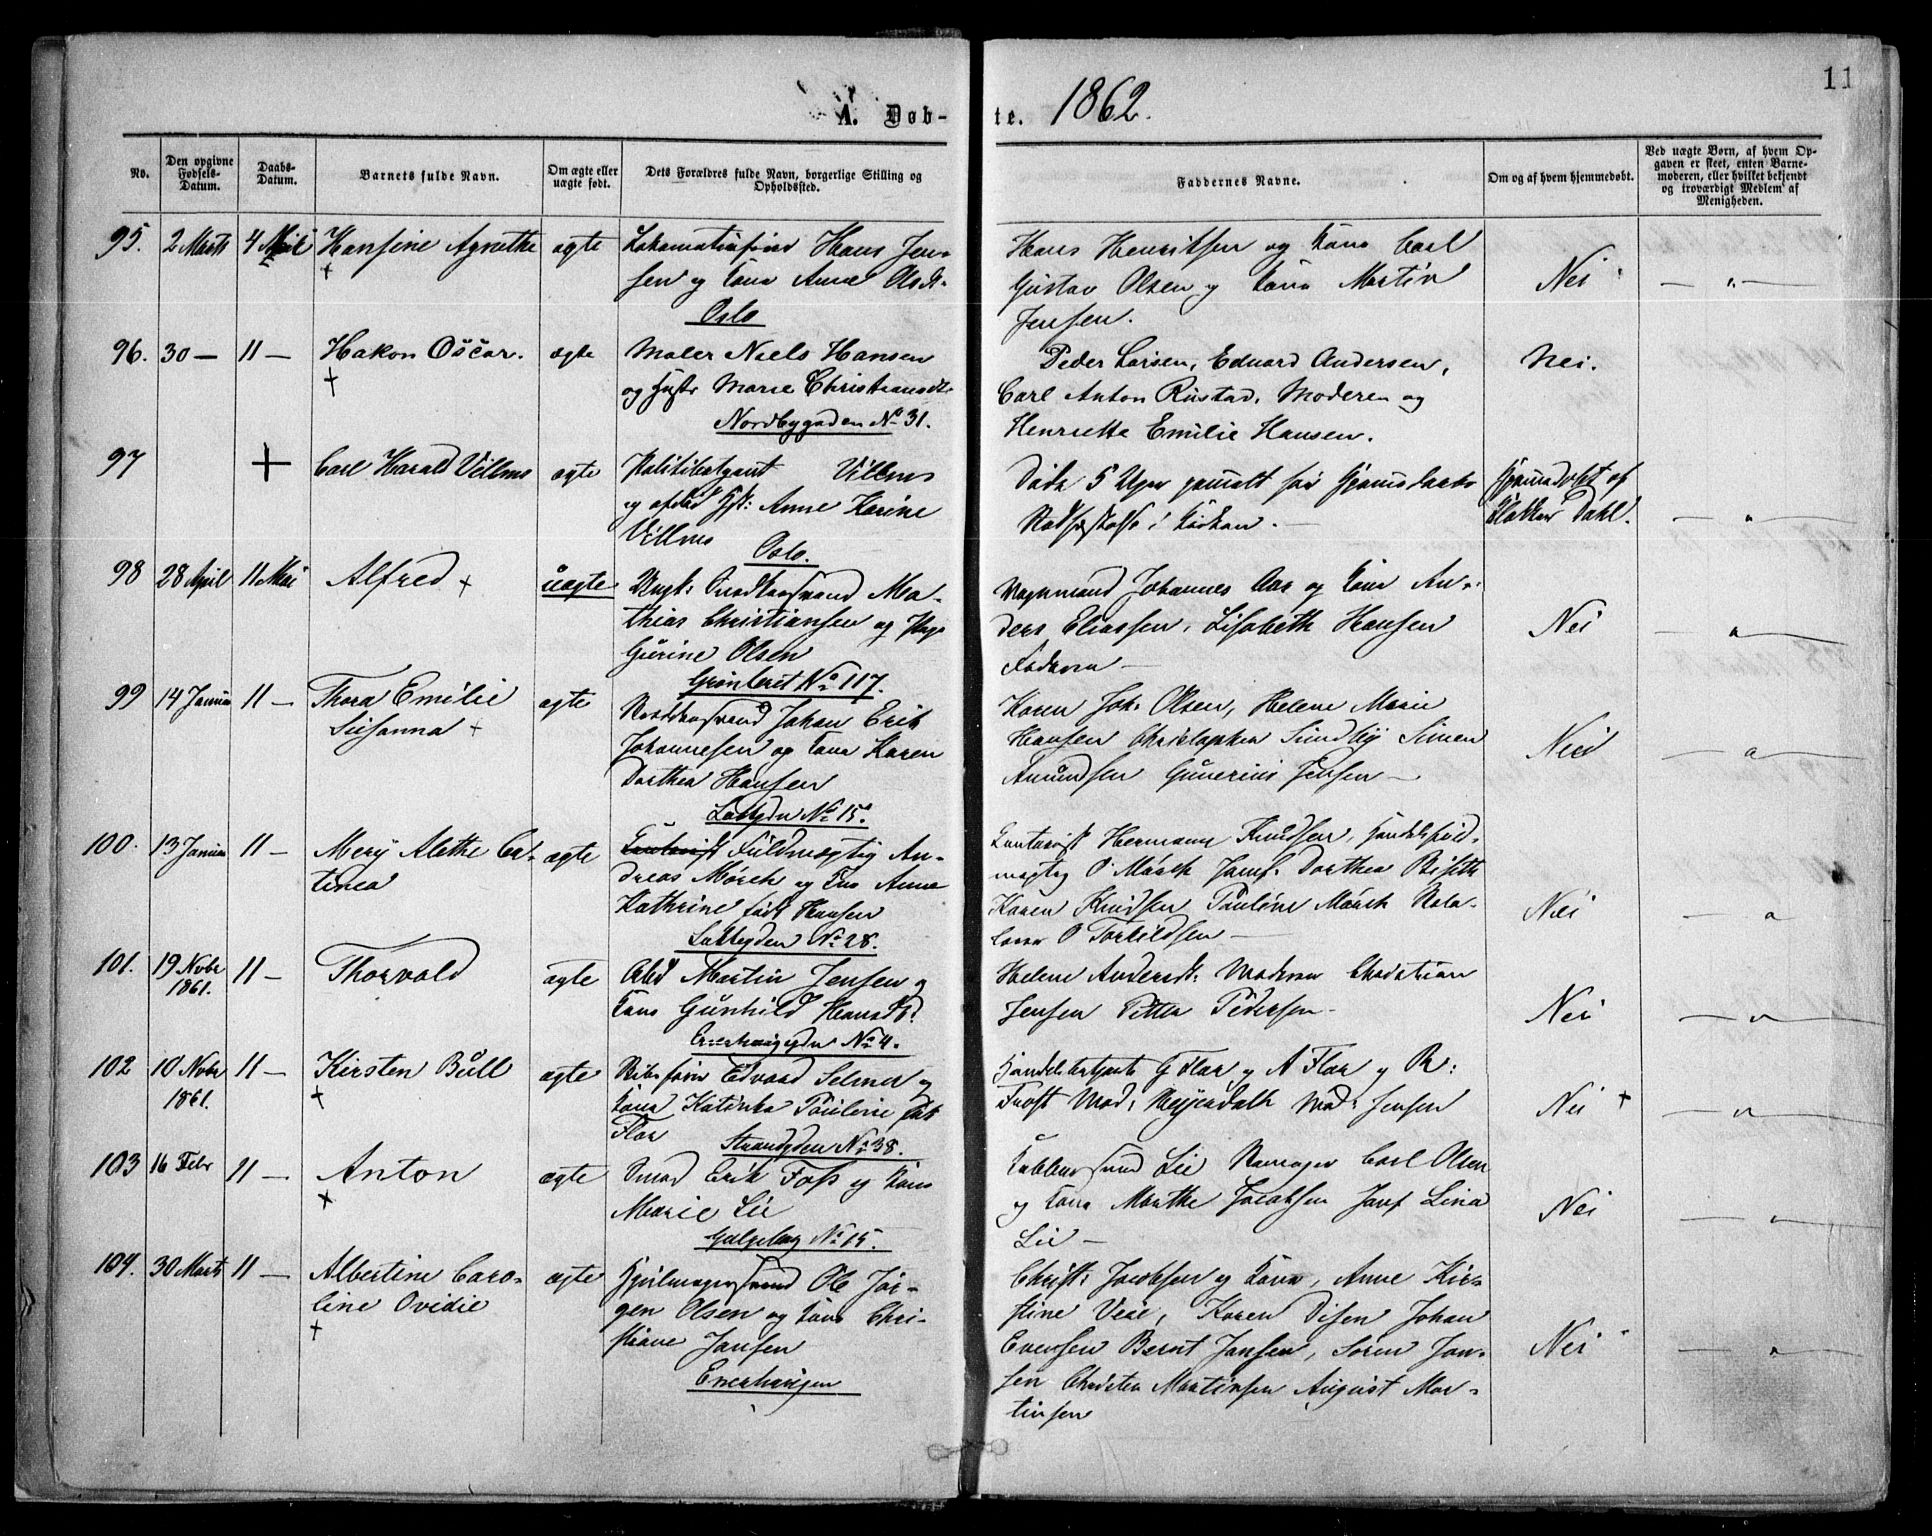 11
A. Døb-te. 1862.
No.
Den opgivne Fødsels-Datum.
Daabs-Datum.
Barnets fulde Navn.
Om ægte eller uægte født.
Dets Forældres fulde Navn, borgerlige Stilling og Opholdssted.
Faddernes Navne.
Om og af hvem hjemmedøbt.
Ved uægte Børn, af hvem Opgaven er skeet, enten Barnemoderen, eller hvilket bekjendt og troværdigt Medlem af Menigheden.
95. 2 Marts 4 Mai Hansine Agnethe ægte
Hans Jensen
og Kone Anne Olsdt.
Oslo
Hans Henriksen og Kone Carl
Gustav Olsen og Kone Martin
Jensen.
Nei
96. 30 — 11 — Hakon Oscar. ægte
Maler Niels Hansen
og Hustr Marie Christiansdt.
Nordbygaden No 31.
Peder Larsen, Eduard Andersen,
Carl Anton Rustad, Moderen og
Henriette Emilie Hansen.
Nei.
97 Carl Harald Villms ægte
Politibetjent Villms
og afdød Hst: Anne Karine
Villms
Oslo.
Døde 5 Uger gammelt før
i Kirken. —
Hjemmedøbt af
Klokker Dahl.
98 28 April 11 Mai Alfred uægte
Ungk: Mathias
Christiansen og Pige
Gurine Olsen
Grønleret No 117.
Vognmand Johannes Aas og Kone Anders
Eliassen, Lisabeth Hansen
Faderen —
Nei
99 14 Januar 11 — Thora Emilie
Susanna ægte
Johan Erik
Johannesen og Kone Karen
Dorthea Hansen
Lakkegdn No 15.
Karen Joh. Olsen, Helene Marie
Hansen Christopher Sundby Simen
Amundsen Gunerius Jensen —
Nei
100. 13 Januar 11 — Mery Alethe Ca-
tinca ægte
Fuldmægtig An-
dreas Mørch og Fru Anne
Kathrine født Hansen
Lakkegden No 28.
Hermann Knudsen, Handelsfuld-
mægtig O Mørch Jomf. Dorthea
Karen Knudsen Pauline Mørch
O Torkildsen —
Nei
101. 19 Novbr
1861. 11 — Thorvald ægte
Arbd Martin Jensen og
Kone Gunhild Hansdt.
Enerhauggdn No 4.
Helene Andersdt. Moderen Christian
Jensen Petter Pedersen —
Nei
102 10 Novbr
1861. 11 — Kirsten Bull ægte
Edvard Selmer og
Kone Katinka Pauline født
Flor
Strandgden No 38.
Handelsbetjent G Flor og A Flor og
Frost Mad: Mad: Jensen
Nei
103 16 Febr 11 — Anton ægte
Smed Erik Foss og Kone
Marie Lie
Galgeberg No 15.
Lie Carl Olsen
og Kone Marthe Jacobsen Jomf Lina
Lie —
Nei
104. 30 Marts 11 — Albertine Caro-
line Ovidie ægte
Hjulmagersvend Ole Jør-
gen Olsen og Kone Chri-
stiane Jansen
Enerhaugen
Christ: Jacobsen og Kone, Anne Kir-
stine Veie, Karen Disen Johan
Evensen Bernt Jansen, Søren Jan-
sen Christen Martinsen August Mar-
tinsen
Nei